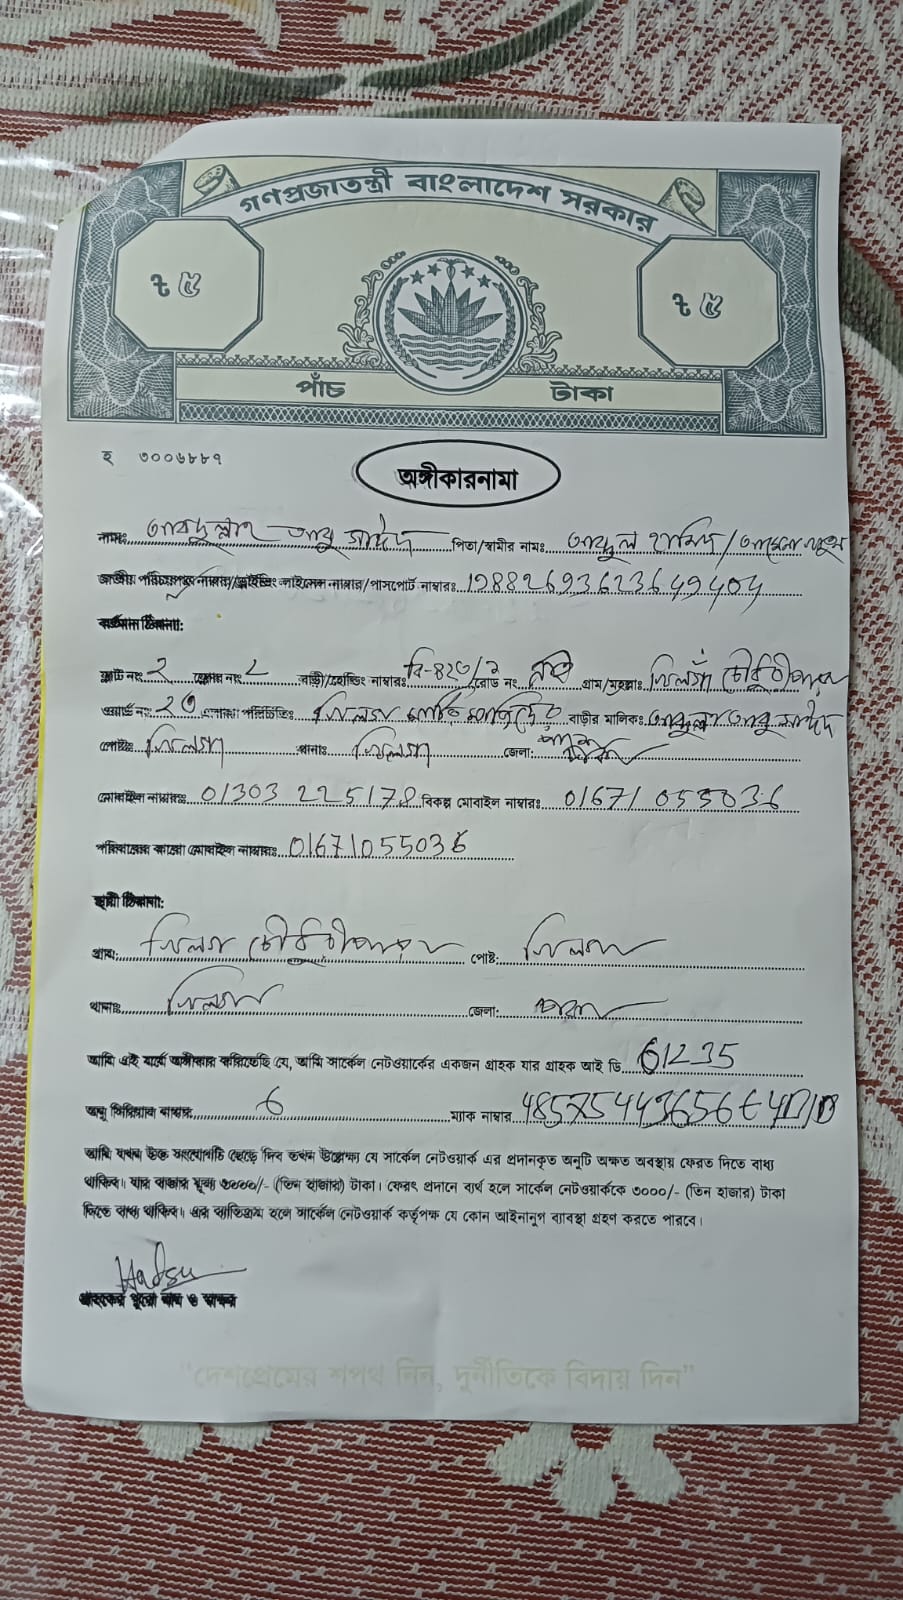 গণপ্রজাতন্ত্রী বাংলাদেশ সরকার
৳ ৫ ৳ ৫
পাঁচ টাকা
হ ৩০০৬৮৮৭
অঙ্গীকারনামা
নামঃ আবদুল্লাহ আবু সাঈদ পিতা/স্বামীর নামঃ আব্দুল হামিদ/
জাতীয় পরিচয়পত্র নাম্বার/ড্রাইভিং লাইসেন্স নাম্বার/পাসপোর্ট নাম্বারঃ 19882693623649404
বর্তমান ঠিকানা:
ফ্ল্যাট নং: 2 ফ্লোর নং: বাড়ী/হোল্ডিং নাম্বারঃ বি-৪২৩/২ রোড নং: গ্রাম/মহল্লাঃ খিলগাঁ চৌধুরীপাড়া
ওয়ার্ড নং: 23 এলাকা পরিচিতিঃ খিলগাঁ বাড়ীর মালিকঃ আবদুল্লাহ আবু সাঈদ
পোষ্টঃ খিলগাঁ থানাঃ খিলগাঁ জেলা: ঢাকা
মোবাইল নাম্বারঃ 01303 225178 বিকল্প মোবাইল নাম্বারঃ 01671 055036
পরিবারের কারো মোবাইল নাম্বারঃ 01671055036
স্থায়ী ঠিকানা:
গ্রাম: খিলগাঁ চৌধুরীপাড়া পোষ্ট: খিলগাঁ
থানাঃ খিলগাঁ জেলা: ঢাকা
আমি এই মর্মে অঙ্গীকার করিতেছি যে, আমি সার্কেল নেটওয়ার্কের একজন গ্রাহক যার গ্রাহক আই ডি 61235
অনু সিরিয়াল নাম্বার 6 ম্যাক নাম্বার 48575443656E4
আমি যখন উক্ত সংযোগটি ছেড়ে দিব তখন উল্লেক্ষ্য যে সার্কেল নেটওয়ার্ক এর প্রদানকৃত অনুটি অক্ষত অবস্থায় ফেরত দিতে বাধ্য
থাকিব। যার বাজার মূল্য ৩০০০/- (তিন হাজার) টাকা। ফেরৎ প্রদানে ব্যর্থ হলে সার্কেল নেটওয়ার্ককে ৩০০০/- (তিন হাজার) টাকা
দিতে বাধ্য থাকিব। এর ব্যতিক্রম হলে সার্কেল নেটওয়ার্ক কর্তৃপক্ষ যে কোন আইনানুগ ব্যবস্থা গ্রহণ করতে পারবে।
গ্রাহকের পুরো নাম ও স্বাক্ষর
"দেশপ্রেমের শপথ নিন, দুর্নীতিকে বিদায় দিন"